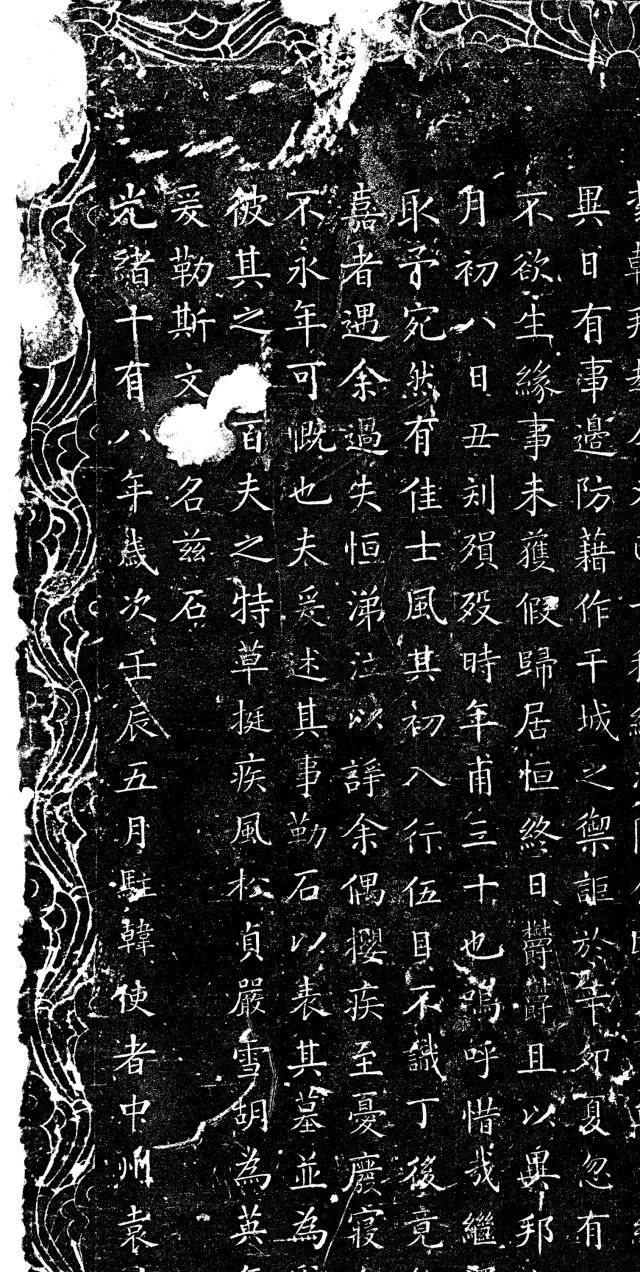 異日有事邊防藉作干城之禦詎於辛卯夏忽有
不欲生緣事未獲假歸居恒終日鬱鬱且以異邦
月初八日丑刻殞歿時年甫三十也嗚呼惜哉繼
取予宛然有佳士風其初入行伍目不識丁後竟
嘉者遇余過失恒涕泣以諍余偶攖疾至憂廢寢
不永年可慨也夫爰述其事勒石以表其墓並為
彼其之 百夫之特草挺疾風松貞嚴雪胡為英
爰勒斯文 名茲石
光緒十有八年歲次壬辰五月駐韓使者中州袁